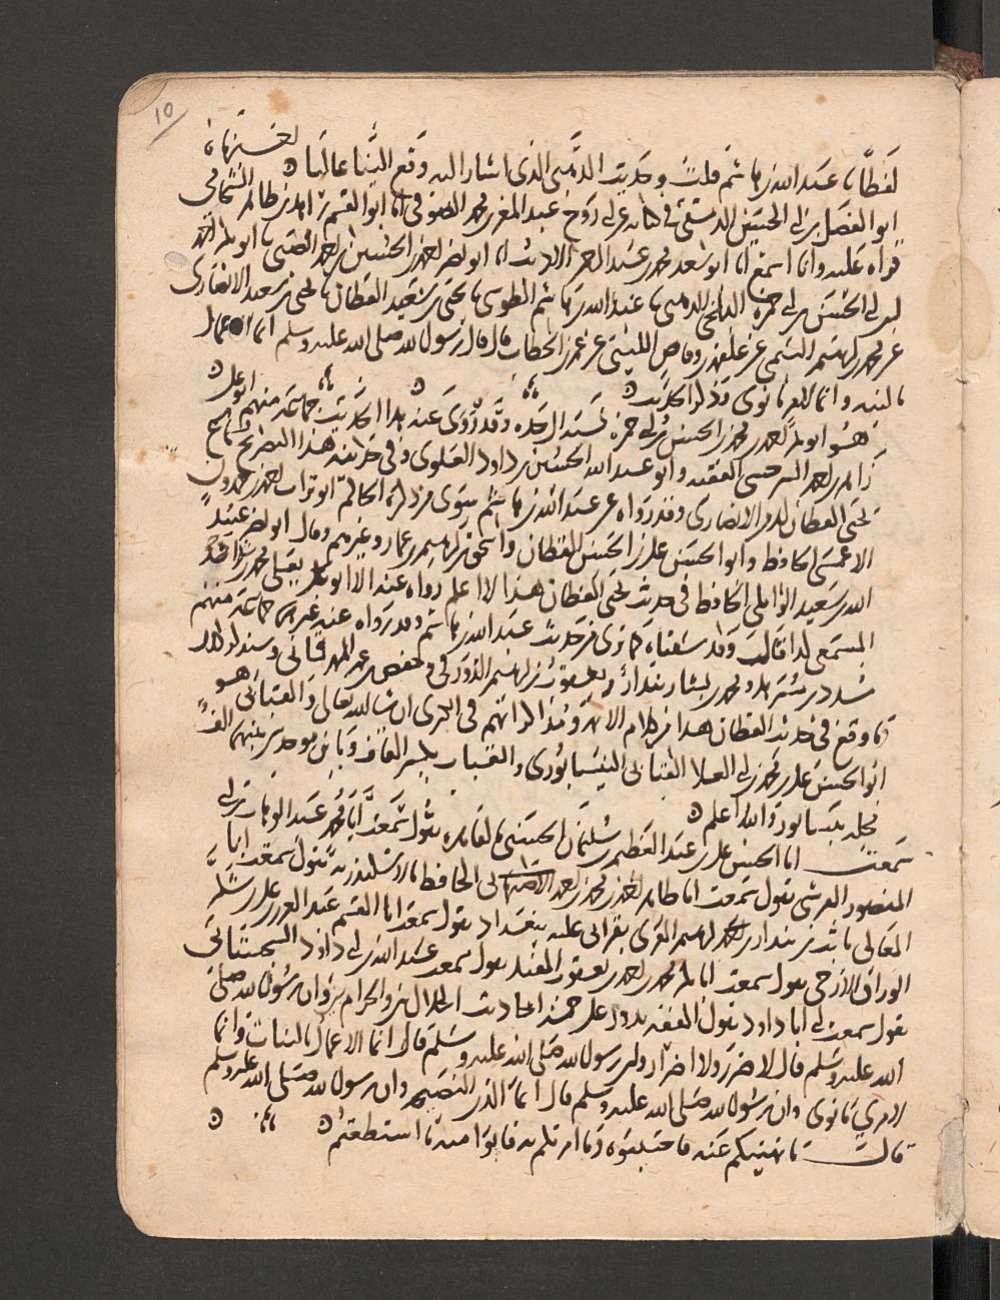 10
لفظا نا عبد الله بن هاشم قلت وحديث الدهني الذي اشار اليه وقع الينا عاليا
ابو الفضل بن الحسين الدمشقي في كتابه عن ابي روح عبد المعز بن محمد الصوفي انا ابو القسم زاهر بن طاهر الشحامي
قراه عليه وانا اسمع انا ابو سعد محمد بن عبد الرحمن الاديب انا ابو نصر احمد بن الحسين بن احمد الضبي نا ابو بكر احمد
بن ابي الحسن بن ابي حمزة البلخي الدهني نا عبد الله بن هاشم الطوسي نا يحيى بن سعيد القطان نا يحيى بن سعيد الانصاري
عن محمد بن ابرهيم التيمي عن علقمة بن وقاص الليثي عن عمر بن الخطاب قال قال رسول الله صلى الله عليه وسلم انما الاعمال
بالنيه وانما لامرئ ما نوى وذكر الحديث
هو ابو بكر احمد بن محمد بن الحسن بن ابي حمزة نسب الى جده وقد روى عنه هذا الحديث جماعة منهم ابو علي
زاهر بن احمد السرخسي الفقيه وابو عبد الله الحسين بن داود العلوي وفي طريقه هذا
يحيى القطان الانصاري وقد رواه عن عبد الله بن هاشم سوى من ذكره الحاكم ابو تراب احمد بن حمدون
الاعمشي الحافظ وابو الحسن علي بن الحسن القطان واسحق بن ابرهيم بن عمار وغيرهم وقال ابو نصر عبيد
الله بن سعيد الوايلي الحافظ في حديث يحيى القطان هذا لا اعلم رواه عنه الا ابو محمد بن
كذا قالت وقد سقناه كما ترى من حديث عبد الله بن هاشم وقد رواه عنه غيرهما جماعة منهم
مسدد بن مسرهد ومحمد بن بشار بندار ويعقوب بن ابرهيم الدورقي وحفص بن عمر المهرقاني وسنذكر
ما وقع في حديث القطان هذا من كلام الايمة ومذاكراتهم في اخرى ان شا الله تعالى والقبابي هو
ابو الحسن علي بن محمد بن ابي العلا القبابي النيسابوري والقباب بكسر القاف وباين موحدتين بينهما الف
محلة بنيسابور والله اعلم
سمعت ابا الحسن علي بن عبد العظيم بن سليمان الحسيني بالقاهره يقول سمعت ابا محمد عبد الوهاب بن ابي
المنصور القرشي يقول سمعت ابا طاهر احمد بن محمد بن احمد الاصبهاني الحافظ بالاسكندرية يقول سمعت ابا
المعالي ثابت بن بندار بن ابرهيم المقرئ بقراتي عليه ببغداد يقول سمعت ابا القسم عبد العزيز بن علي بن شكر
الوراق الازجي يقول سمعت ابا بكر محمد بن احمد بن يعقوب المفيد يقول سمعت عبد الله بن ابي داود السجستاني
يقول سمعت ابي ابا داود يقول الفقه يدور على خمسة احاديث الحلال بين والحرام بين وان رسول الله صلى
الله عليه وسلم قال لا ضرر ولا اضرار وان رسول الله صلى الله عليه وسلم قال انما الاعمال بالنيات وانما
لامرئ ما نوى وان رسول الله صلى الله عليه وسلم قال انما الدين النصيحه وان رسول الله صلى الله عليه وسلم
قال ما نهيتكم عنه فاجتنبوه وما امرتكم به فاتوا منه ما استطعتم